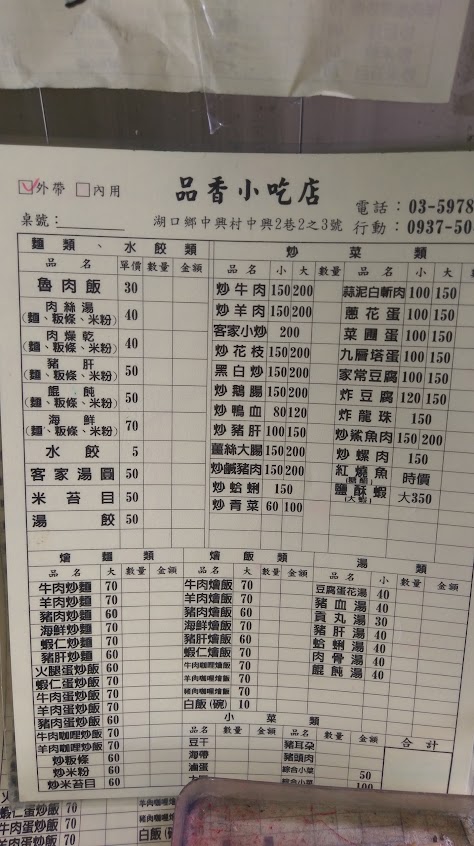 外帶 內用 品香小吃店
電話:03-5978
桌號: 湖口鄉中興村中興2巷2之3號 行動:0937-50
麵類、水餃類
品名 單價 數量 金額
魯肉飯 30
肉絲湯 40
(麵、粄條、米粉)
肉燥乾 40
(麵、粄條、米粉)
豬肝 50
(麵、粄條、米粉)
餛飩 50
(麵、粄條、米粉)
海鮮 70
(麵、粄條、米粉)
水餃 5
客家湯圓 50
米苔目 50
湯餃 50
炒菜類
品名 小 大 數量 品名 小 大
炒牛肉 150 200
炒羊肉 150 200
客家小炒 200
炒花枝 150 200
黑白炒 150 200
炒鵝腸 150 200
炒鴨血 80 120
炒豬肝 100 150
薑絲大腸 150 200
炒鹹豬肉 150 200
炒蛤蜊 150
炒青菜 60 100
蒜泥白斬肉 100 150
蔥花蛋 100 150
菜圃蛋 100 150
九層塔蛋 100 150
家常豆腐 100 150
炸豆腐 120 150
炸龍珠 150
炒鯊魚肉 150 200
炒螺肉 150
紅燒魚 時價
鹽酥蝦 大350
燴麵類
品名 大 數量 金額
牛肉炒麵 70
羊肉炒麵 70
豬肉炒麵 60
海鮮炒麵 70
蝦仁炒麵 70
豬肝炒麵 60
火腿蛋炒飯 60
蝦仁蛋炒飯 70
牛肉蛋炒飯 70
羊肉蛋炒飯 70
豬肉蛋炒飯 60
牛肉咖哩炒飯 70
羊肉咖哩炒飯 70
炒粄條 60
炒米粉 60
炒米苔目 60
燴飯類
品名 大 數量 金額
牛肉燴飯 70
羊肉燴飯 70
豬肉燴飯 60
海鮮燴飯 70
豬肝燴飯 60
蝦仁燴飯 70
牛肉咖哩燴飯 70
羊肉咖哩燴飯 70
豬肉咖哩燴飯 70
白飯(碗) 10
湯類
品名 小 數量 金額
豆腐蛋花湯 40
豬血湯 40
貢丸湯 30
豬肝湯 40
蛤蜊湯 40
肉骨湯 40
餛飩湯 40
小菜類
品名 數量 金額 品名 數量 金額 合計
豆干 豬耳朵
海帶 豬頭肉
滷蛋 綜合小菜 50
綜合小菜 100
蝦仁蛋炒飯 70 羊肉咖哩燴飯
牛肉蛋炒飯 70
羊肉蛋炒飯 70 白飯